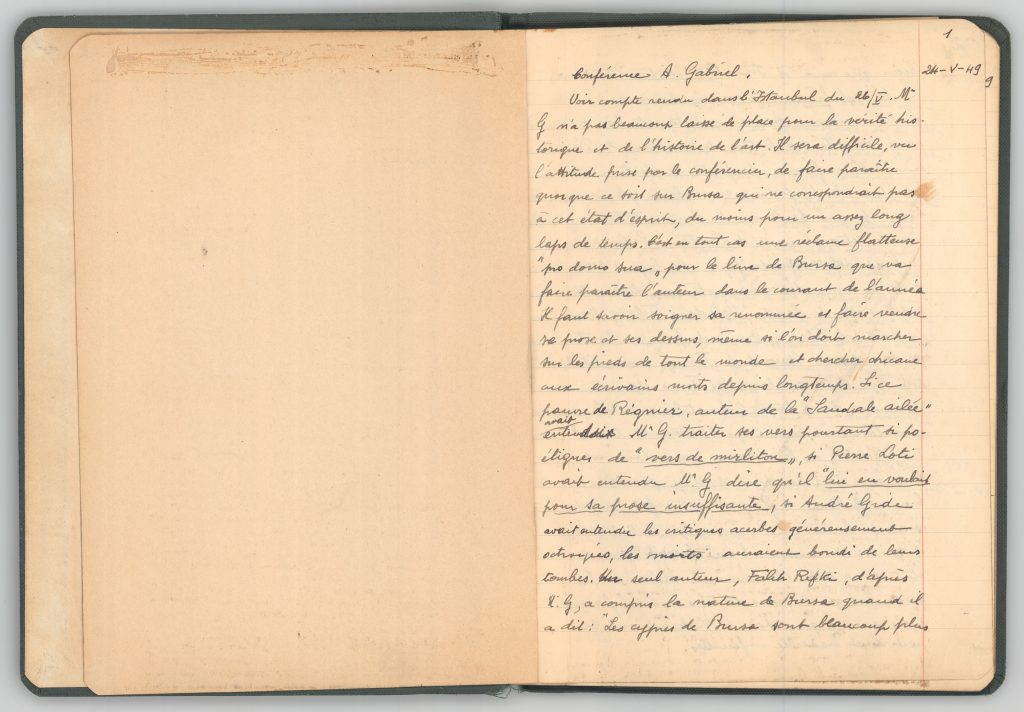 1
24-V-49
9
Conférence A. Gabriel.
Voir compte rendu dans l'Istanbul du 26/V. Mr
G n'a pas beaucoup laissé de place pour la verité his-
torique et de l'histoire de l'art. Il sera difficile, vu
l'attitude prise par le conférencier, de faire paraître
quoique ce soit sur Bursa qui ne correspondrait pas
à cet état d'esprit, du moins pour un assez long
laps de temps. C'est en tout cas une réclame flatteuse
"pro domo sua" pour le livre de Bursa que va
faire paraître l'auteur dans le courant de l'année
Il faut savoir soigner sa renommée et faire vendre
sa prose et ses dessins, même si l'on doit marcher
sur les pieds de tout le monde et chercher chicane
aux écrivains morts depuis longtemps. Si ce
pauvre de Régnier, auteur de la "Sandale ailée"
avait
entendu Mr G. traiter ses vers pourtant si po-
étiques de "vers de mirliton", si Pierre Loti
avait entendu Mr. G dire qu'il "lui en voulait
pour sa prose insuffisante, si André Gide
avait entendu les critiques acerbes généreusement
octroyées, les morts auraient bondi de leurs
tombes. Un seul auteur, Falih Refki, d'après
G, a compris la nature de Bursa quand il
a dit : "Les cyprès de Bursa sont beaucoup plus